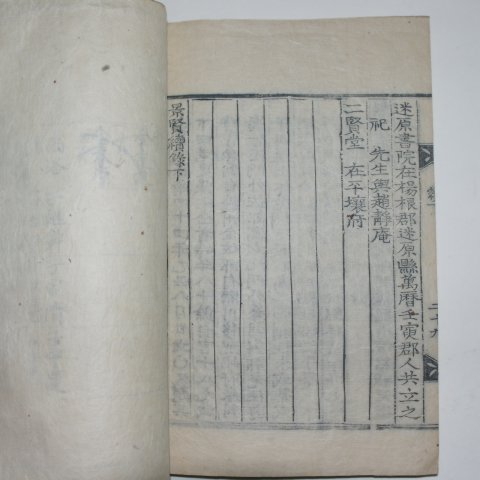 迷原書院在楊根郡迷原縣萬曆壬寅郡人共立之
祀先生與趙靜庵
二賢堂在平壤府
景賢續錄下